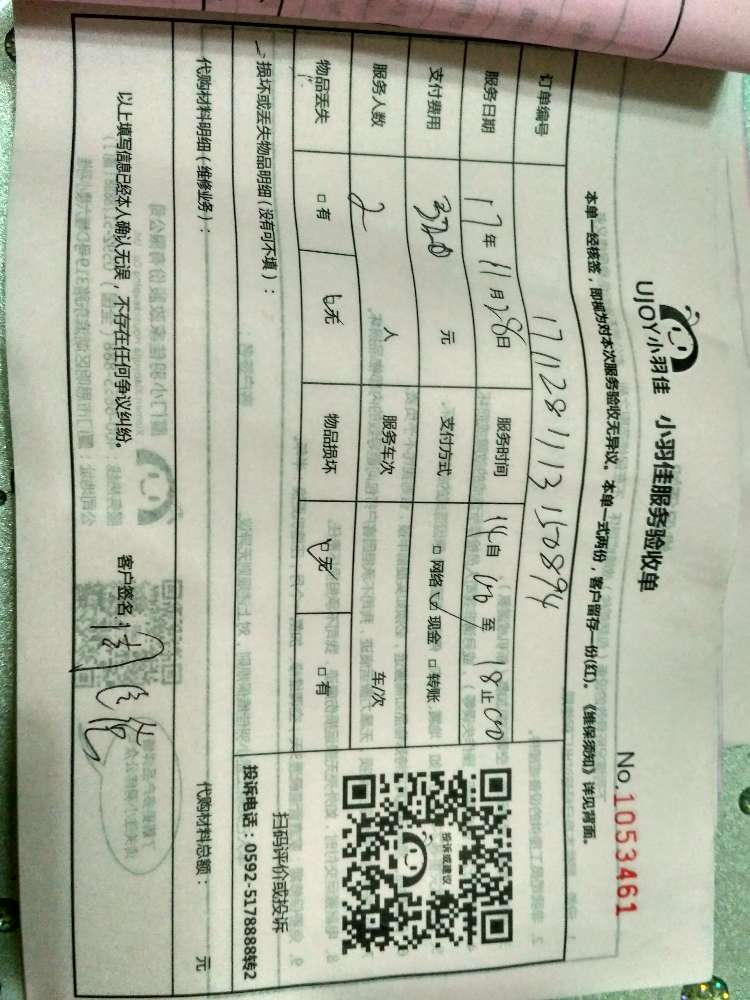 UJOY小羽佳 小羽佳服务验收单
No.1053461
本单一经核签，即视为对本次服务验收无异议。本单一式两份，客户留存一份(红)。《维保须知》详见背面。
订单编号 1711281113150894
服务日期 17年11月28日 服务时间 14自00至18止00
支付费用 320元 支付方式 □网络 ☑现金 □转账
服务人数 2人 服务车次 车/次
物品丢失 □有 ☑无 物品损坏 ☑无 □有
损坏或丢失物品明细(没有可不填)：
投诉或建议
扫码评价或投诉
投诉电话：0592-5178888转2
代购材料明细(维修业务)： 代购材料总额： 元
以上填写信息已经本人确认无误，不存在任何争议纠纷。 客户签名：